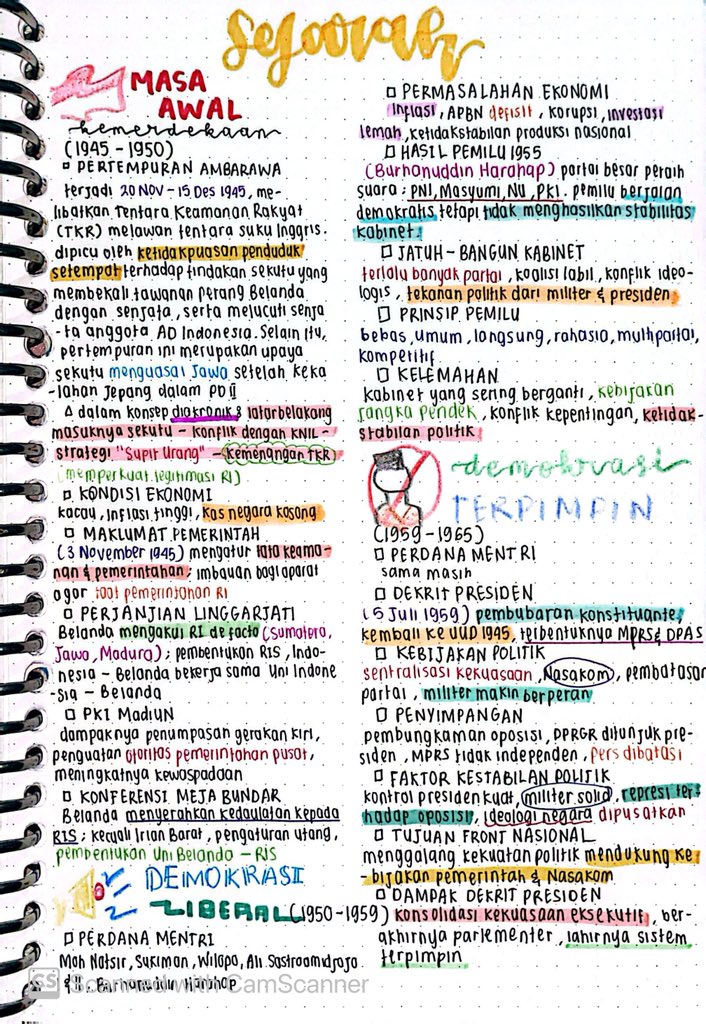 Sejarah
MASA
AWAL
kemerdekaan
(1945 - 1950)
□ PERTEMPURAN AMBARAWA
terjadi 20 NOV - 15 Des 1945, me-
libatkan Tentara Keamanan Rakyat
(TKR) melawan tentara suku Inggris.
dipicu oleh ketidakpuasan penduduk
setempat terhadap tindakan sekutu yang
membekali tawanan perang Belanda
dengan senjata, serta melucuti senja
-ta anggota AD Indonesia. Selain itu,
pertempuran ini merupakan upaya
sekutu menguasai Jawa setelah keka
-lahan Jepang dalam PD II
∆ dalam konsep diakronik : latarbelakang
masuknya sekutu - konflik dengan KNIL -
strategi "Supit Urang" - kemenangan TKR
(memperkuat legitimasi RI)
□ KONDISI EKONOMI
kacau, inflasi tinggi, kas negara kosong
□ MAKLUMAT PEMERINTAH
(3 November 1945) mengatur tata keama-
nan & pemerintahan; imbauan bagi aparat
agar taat pemerintahan RI
□ PERJANJIAN LINGGARJATI
Belanda mengakui RI de facto (Sumatera,
Jawa, Madura); pembentukan RIS, Indo-
nesia - Belanda bekerja sama Uni Indone
-sia - Belanda
□ PKI Madiun
dampaknya penumpasan gerakan kiri,
penguatan otoritas pemerintahan pusat,
meningkatnya kewaspadaan
□ KONFERENSI MEJA BUNDAR
Belanda menyerahkan kedaulatan kepada
RIS; kecuali Irian Barat, pengaturan utang,
pembentukan Uni Belanda - RIS
DEMOKRASI
LIBERAL (1950 - 1959)
□ PERDANA MENTRI
Moh Natsir, Sukiman, Wilopo, Ali Sastroamidjojo
Burhanuddin Harahap
□ PERMASALAHAN EKONOMI
Inflasi, APBN defisit, korupsi, investasi
lemah, ketidakstabilan produksi nasional
□ HASIL PEMILU 1955
(Burhanuddin Harahap) partai besar peraih
suara : PNI, Masyumi, NU, PKI. pemilu berjalan
demokratis tetapi tidak menghasilkan stabilitas
kabinet.
□ JATUH - BANGUN KABINET
terlalu banyak partai, koalisi labil, konflik ideo-
logis, tekanan politik dari militer & presiden
□ PRINSIP PEMILU
bebas, umum, langsung, rahasia, multipartai,
kompetitif
□ KELEMAHAN
kabinet yang sering berganti, kebijakan
jangka pendek, konflik kepentingan, ketidak-
stabilan politik
demokrasi
TERPIMPIN
(1959 - 1965)
□ PERDANA MENTRI
sama masih
□ DEKRIT PRESIDEN
(5 Juli 1959) pembubaran konstituante,
kembali ke UUD 1945, terbentuknya MPRS & DPAS
□ KEBIJAKAN POLITIK
sentralisasi kekuasaan, Nasakom, pembatasan
partai, militer makin berperan
□ PENYIMPANGAN
pembungkaman oposisi, DPRGR ditunjuk pre-
siden, MPRS tidak independen, pers dibatasi
□ FAKTOR KESTABILAN POLITIK
kontrol presiden kuat, militer solid, represi ter-
hadap oposisi, ideologi negara dipusatkan
□ TUJUAN FRONT NASIONAL
menggalang kekuatan politik mendukung ke
-bijakan pemerintah & Nasakom
□ DAMPAK DEKRIT PRESIDEN
konsolidasi kekuasaan eksekutif, ber-
akhirnya parlementer, lahirnya sistem
terpimpin
CS Scanned with CamScanner